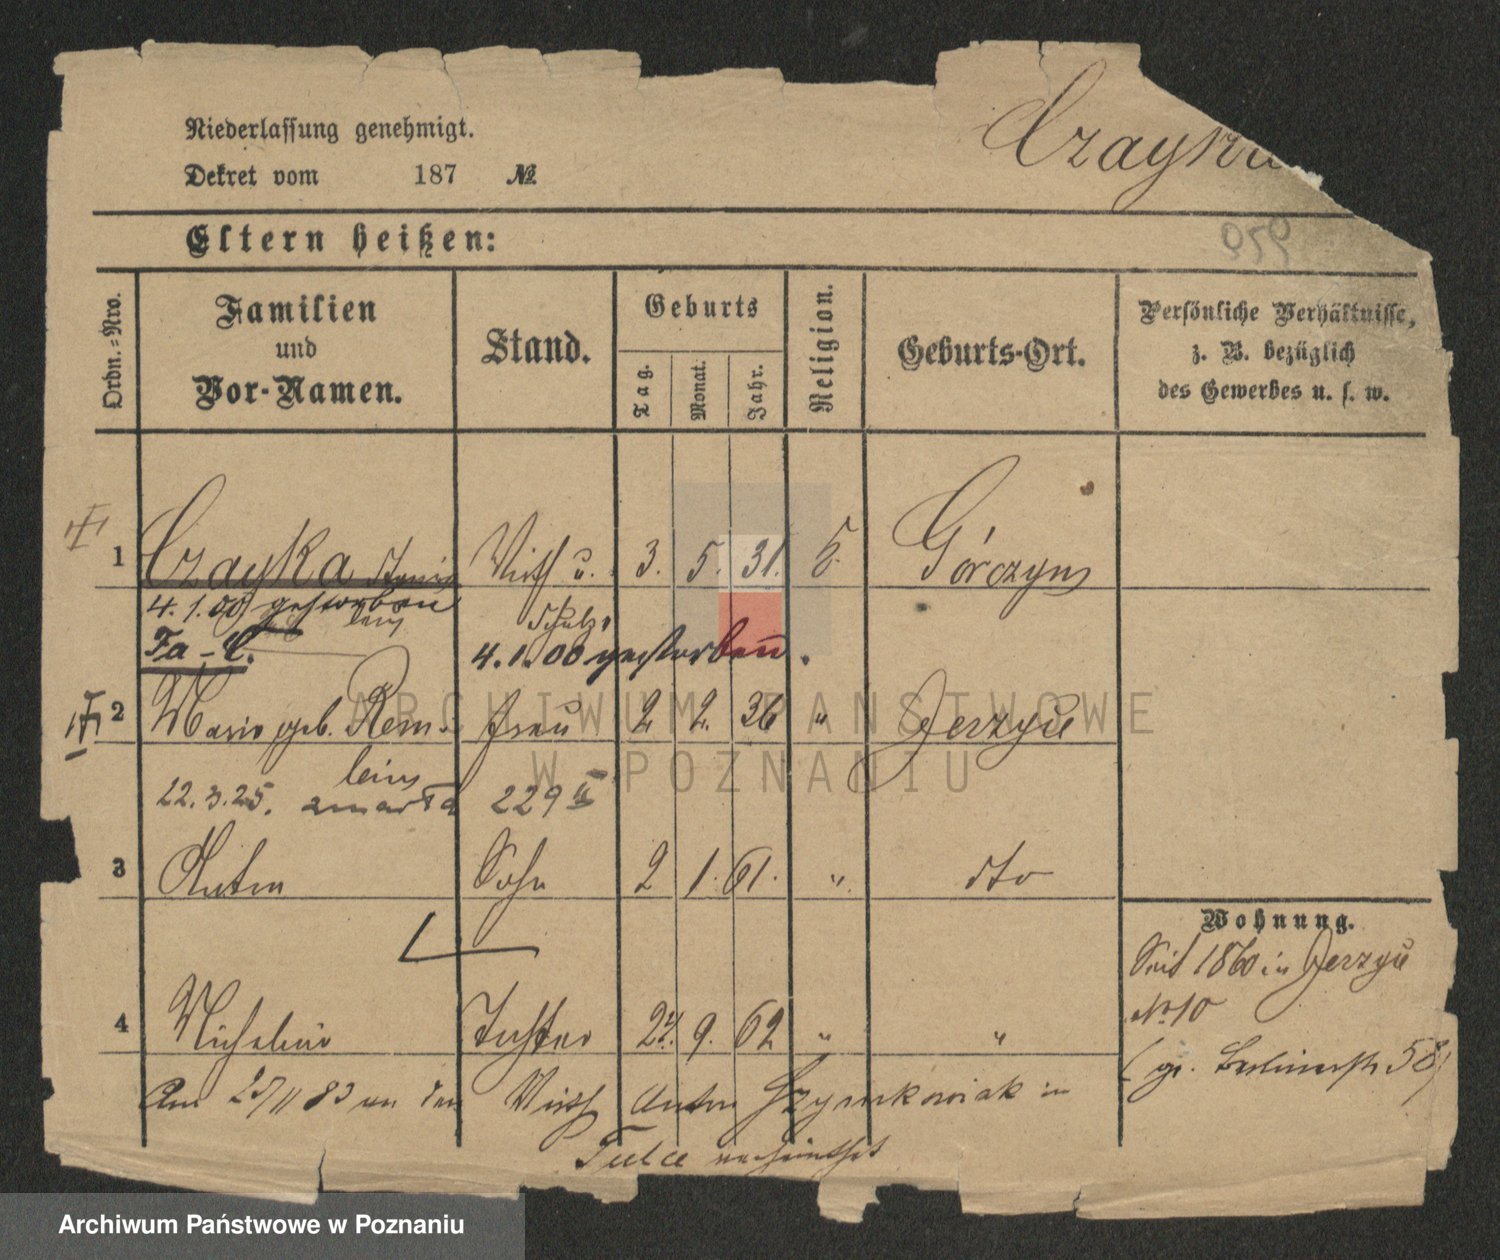 Niederlassung genehmigt.
Dekret vom 187 №
Czayka
959
Eltern heißen:
Ordn.=Nro.
Familien
und
Vor-Namen.
Stand.
Geburts
Tag.
Monat.
Jahr.
Religion.
Geburts-Ort.
Persönliche Verhältnisse,
z. B. bezüglich
des Gewerbes u. s. w.
1 Czayka Wirth u. 3. 5. 31. Górczyn
4.1.00 gestorben Schulz.
Fa - C. 4.1.00 gestorben.
2 Marie geb. Frau 2 2. 36 " Jerzyce
22.3.25. zmarła 229
3 Anton Sohn 2 1. 61. " dto
Wohnung.
Seit 1860 in Jerzyce
No 10
(gr. Berlinerstr 58)
4 Michalina Tochter 24. 9. 62 " "
Am 25/11 83 an den Wirth Anton Szymkowiak in
Tulce verheirathet
ARCHIWUM PAŃSTWOWE
W POZNANIU
Archiwum Państwowe w Poznaniu